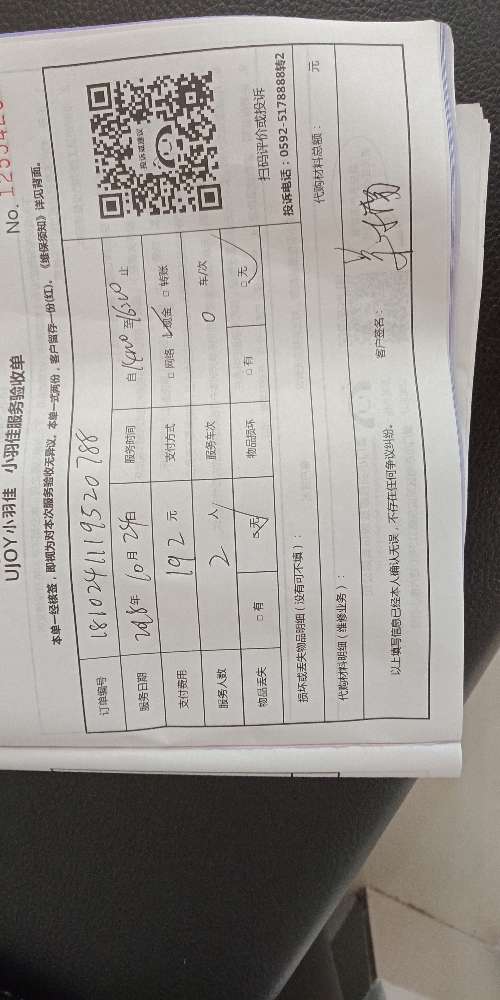 UJOY 小羽佳 小羽佳服务验收单
No. 1255420
本单一经核签，即视为对本次服务验收无异议。本单一式两份，客户留存一份(红)。《维保须知》详见背面。
订单编号 1810241119520788
服务日期 2018年 10月 24日 服务时间 自1400至1600止
支付费用 192 元 支付方式 □ 网络 ☑ 现金 □ 转账
服务人数 2 人 服务车次 0 车/次
物品丢失 □ 有 ☑ 无 物品损坏 □ 有 ☑ 无
投诉或建议
扫码评价或投诉
投诉电话：0592-5178888转2
损坏或丢失物品明细（没有可不填）：
代购材料明细（维修业务）： 代购材料总额： 元
以上填写信息已经本人确认无误，不存在任何争议纠纷。 客户签名：